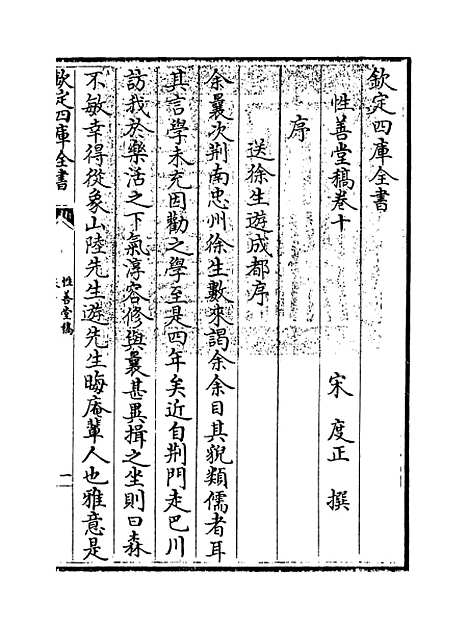 欽定四庫全書
性善堂稿卷十
宋 度正 撰
序
送徐生遊成都序
余曩次荆南忠州徐生數來謁余余目其貌類儒者耳
其言學未充因勸之學至是四年矣近自荆門走巴川
訪我於樂活之下氣淳容修與曩甚異揖之坐則曰森
不敏幸得從象山陸先生遊先生晦庵輩人也雅意是
欽定四庫全書
性善堂稿